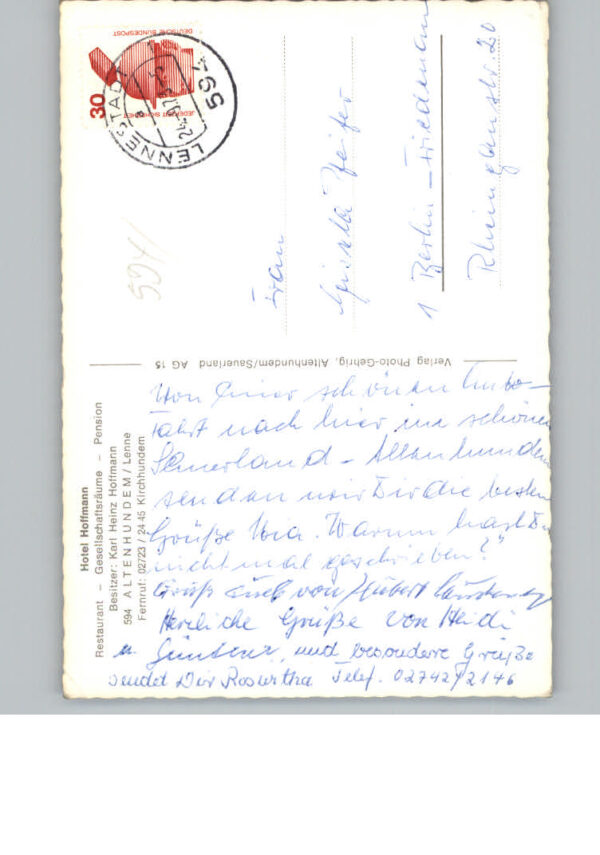 Hotel Hoffmann
Restaurant – Gesellschaftsräume – Pension
Besitzer: Karl Heinz Hoffmann
594 ALTENHUNDEM/Lenne
Fernruf: 02723/2445 Kirchhundem
Verlag Photo-Gehrig, Altenhundem/Sauerland AG 15
DEUTSCHE BUNDESPOST
JEDERZEIT SICHERHEIT
30
LENNESTADT
594
594/
Frau
Gisela Pfeifer
1 Berlin – Friedenau
Rheingaustr. 20
Von einer schönen Auto-
fahrt nach hier im schönen
Sauerland – Altenhundem
senden wir Dir die besten
Grüße Ura. Warum hast Du
nicht mal geschrieben?
Gruß auch von Hubert
Herzliche Grüße von Heidi
u. Günter, und besondere Grüße
sendet Dir Roswitha Telef. 02742/2146